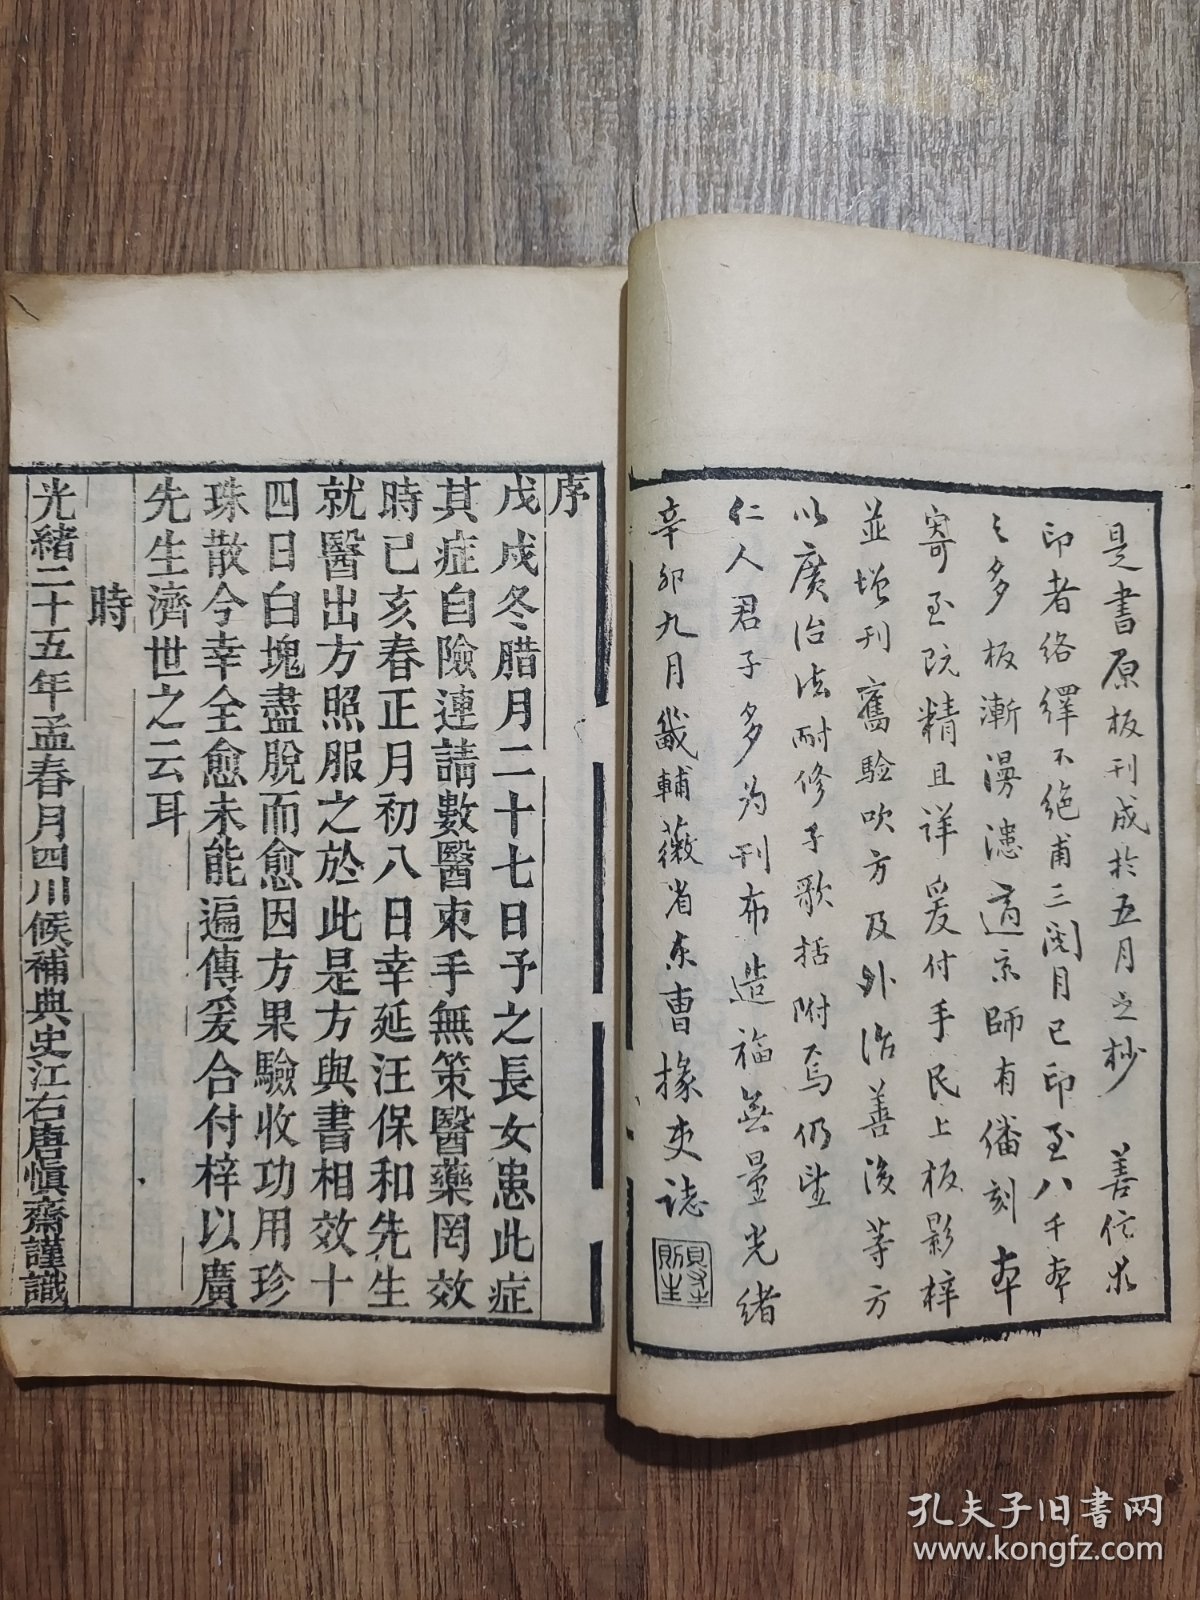 是書原板刊成於五月之杪　善信求
印者絡繹不絕甫三閱月已印至八千本
之多板漸漫漶適京師有繙刻本
寄至阮精且详爰付手民上板影梓
並增刊舊验吹方及外治善後等方
以廣治法耐修子歌括附焉仍望
仁人君子多为刊布造福無量光緒
辛卯九月畿輔薇省东曹掾吏誌
序
戊戌冬腊月二十七日予之長女患此症
其症自險連請數醫束手無策醫藥罔效
時己亥春正月初八日幸延汪保和先生
就醫出方照服之於此是方與書相效十
四日白塊盡脫而愈因方果驗收功用珍
珠散今幸全愈未能遍傳爰合付梓以廣
先生濟世之云耳
時
光緒二十五年孟春月四川候補典史江右唐慎齋謹識
孔夫子旧书网
www.kongfz.com